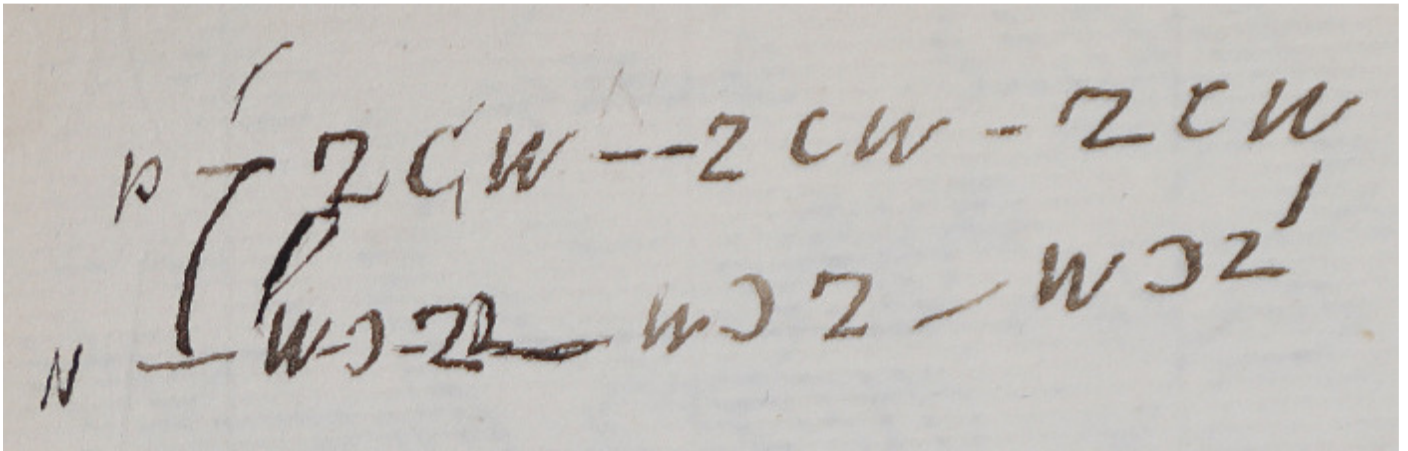 P - Z C W -- Z C W - Z C W
N - W-Ɔ-Z W Ɔ Z - W Ɔ Z